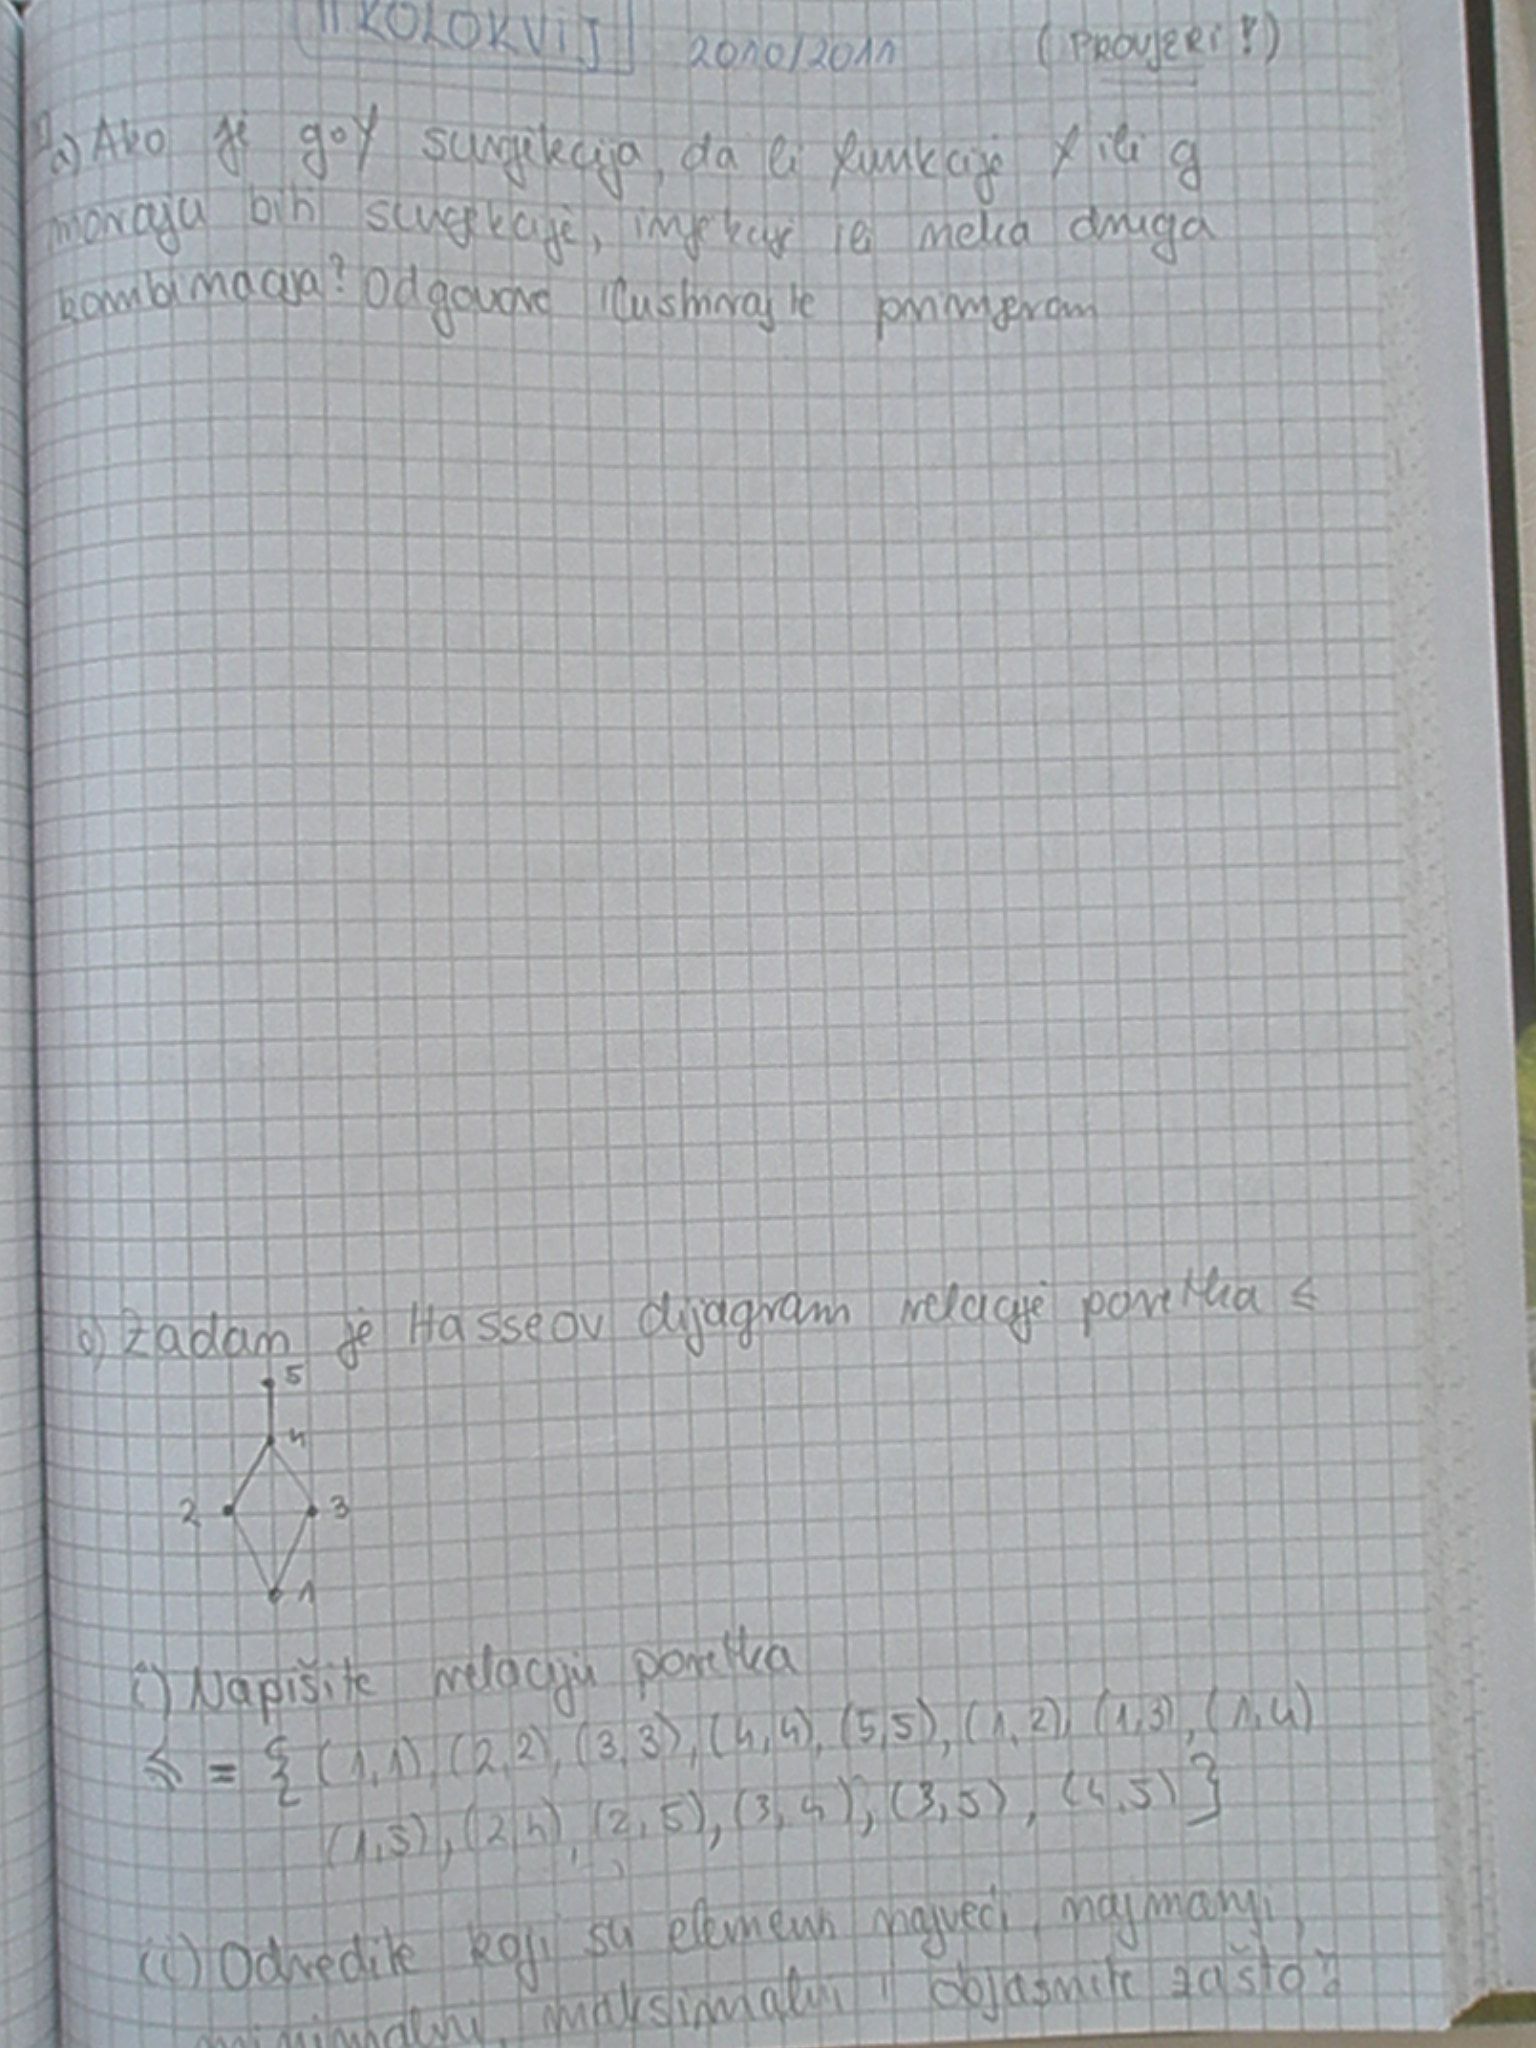 II KOLOKVIJ 2010/2011 (PROVJERI!)
a) Ako je gof surjekcija, da li funkcije f ili g
moraju biti surjekcije, injekcije ili neka druga
kombinacija? Odgovore ilustrirajte primjerom
b) Zadan je Hasseov dijagram relacije poretka ≤
5
4
2 3
1
i) Napišite relaciju poretka
≤ = { (1,1), (2,2), (3,3), (4,4), (5,5), (1,2), (1,3), (1,4)
(1,5), (2,4), (2,5), (3,4), (3,5), (4,5) }
ii) Odredite koji su elementi najveći, najmanji,
minimalni, maksimalni i objasnite zašto?